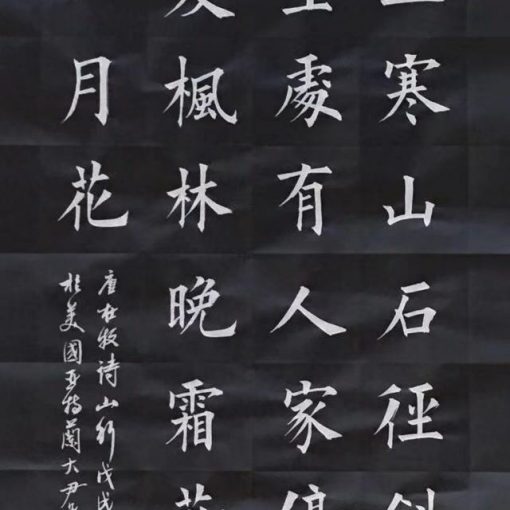 寒山石徑
處有人家停
楓林晚霜
月花
唐杜牧詩山行戊戌
於美國亞特蘭大尹